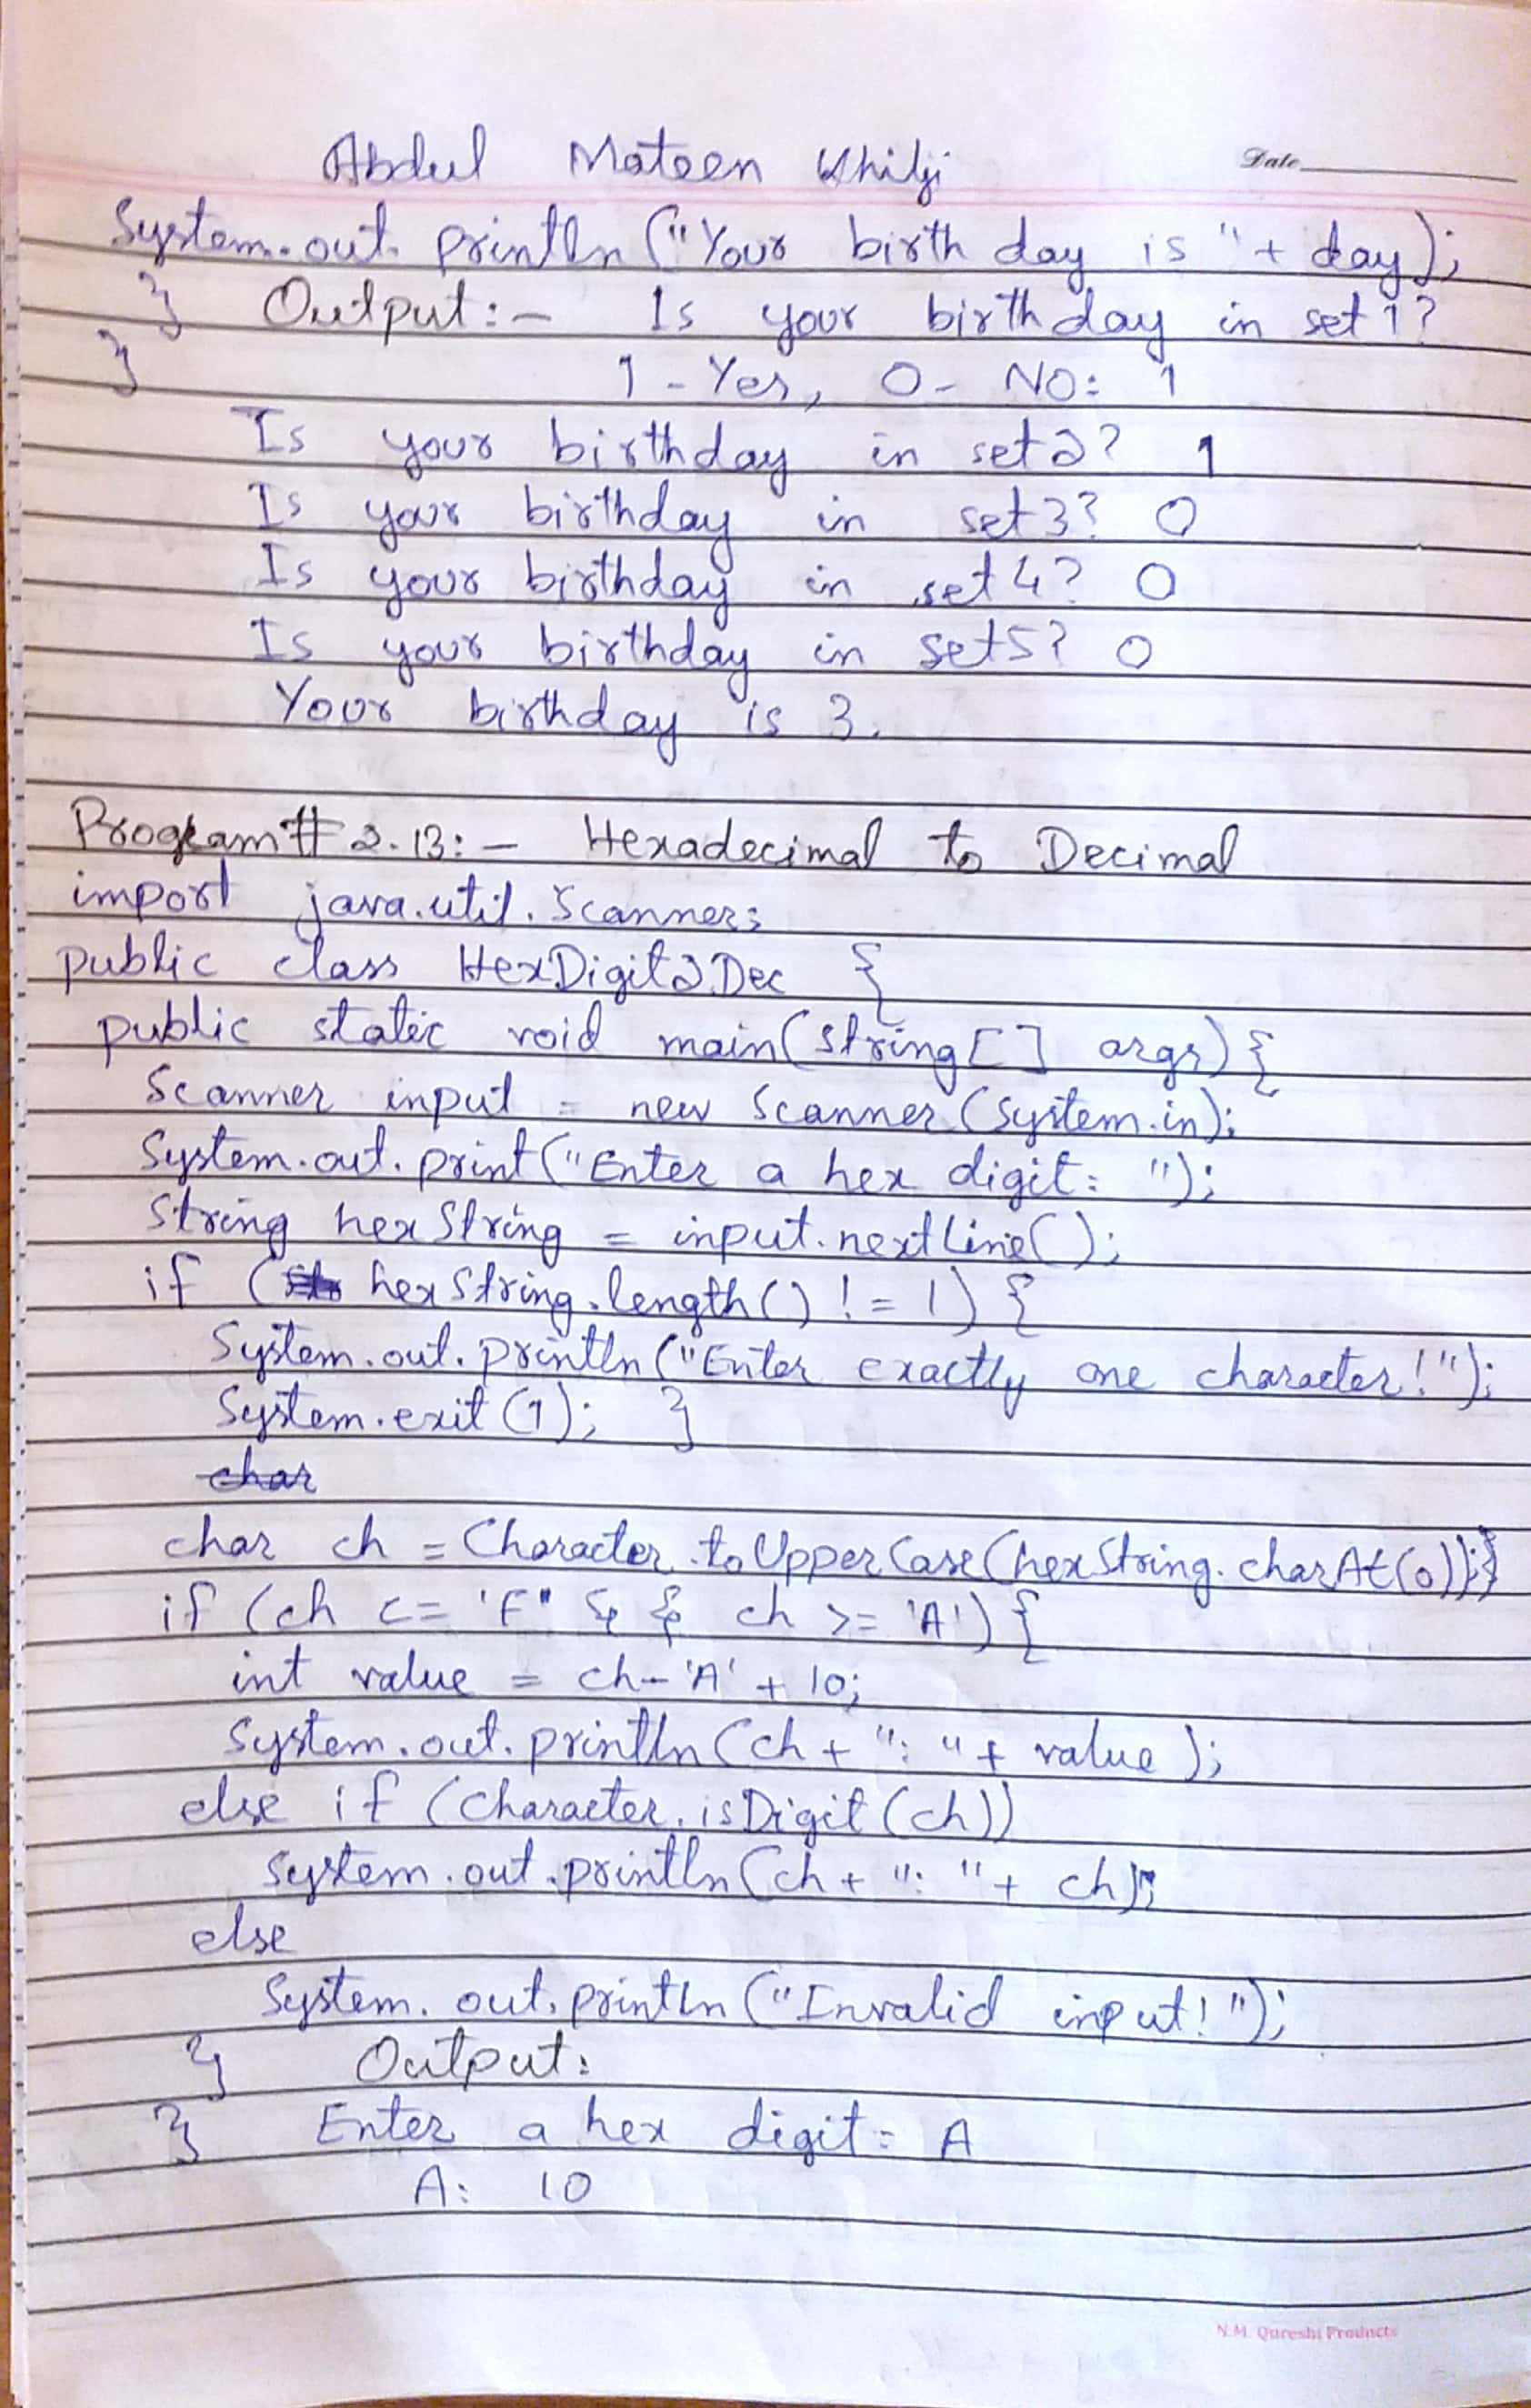 Abdul Mateen Khilji
Date
System.out.println("Your birth day is "+ day);
} Output:- Is your birthday in set 1?
} 1-Yes, 0- NO: 1
Is your birthday in set2? 1
Is your birthday in set3? 0
Is your birthday in set4? 0
Is your birthday in set5? 0
Your birthday is 3.
Program# 2.13:- Hexadecimal to Decimal
import java.util.Scanner;
public class HexDigit2Dec {
public static void main(string[] args) {
Scanner input = new Scanner(System.in);
System.out.print("Enter a hex digit: ");
String hexString = input.nextLine();
if (hexString.length() != 1) {
System.out.println("Enter exactly one character!");
System.exit(1); }
char
char ch = Character.toUpperCase(hexString.charAt(0));}
if (ch <= 'F' && ch >= 'A') {
int value = ch-'A' + 10;
System.out.println(ch+ ": "+ value);
else if (Character.isDigit(ch))
System.out.println(ch+ ": "+ ch);
else
System.out.println("Invalid input!");
} Output:
} Enter a hex digit: A
A: 10
N.M. Qureshi Products